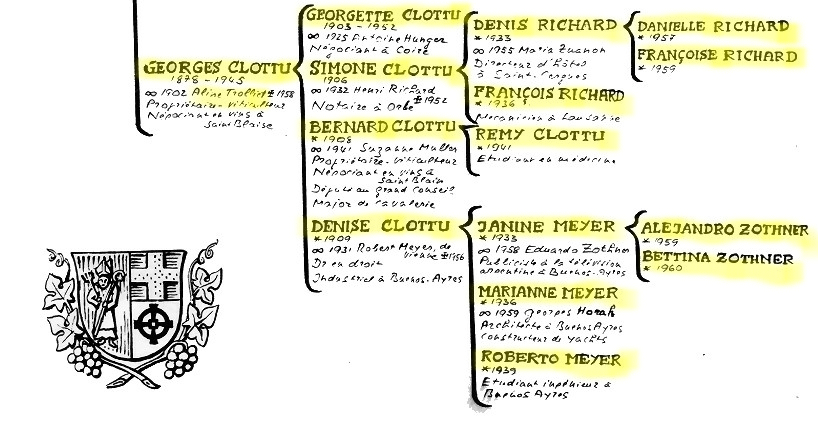 GEORGES CLOTTU
1878 - 1945
∞ 1902 Aline Trolliet ‡ 1958
Propriétaire - viticulteur
Négociant en vins à
Saint Blaise
GEORGETTE CLOTTU
1903 - 1952
∞ 1925 Antoine Hunger
Négociant à Coire
SIMONE CLOTTU
1906
∞ 1932 Henri Richard
‡ 1952
Notaire à Orbe
BERNARD CLOTTU
* 1908
∞ 1941 Suzanne Muller
Propriétaire - viticulteur
Négociant en vins à
Saint Blain
Député au grand Conseil
Major de cavalerie
DENISE CLOTTU
* 1909
∞ 1931 Robert Meyer, de
Vienne ‡ 1956
Dr en droit
Industriel à Buenos-Ayres
DENIS RICHARD
* 1933
∞ 1955 Maria Zuanon
Directeur d'Hôtes
à Saint-Cergues
FRANÇOIS RICHARD
* 1936
Mecanicien à Lausanne
REMY CLOTTU
* 1941
Etudiant en médecine
JANINE MEYER
* 1933
∞ 1958 Eduardo Zothner
Publiciste à la télévision
argentine à Buenos-Ayres
MARIANNE MEYER
* 1936
∞ 1959 Georges Horak
Architecte à Buenos Ayres
constructeur de yachts
ROBERTO MEYER
* 1939
Etudiant ingénieur à
Buenos Ayres
DANIELLE RICHARD
* 1957
FRANÇOISE RICHARD
* 1959
ALEJANDRO ZOTHNER
* 1959
BETTINA ZOTHNER
* 1960